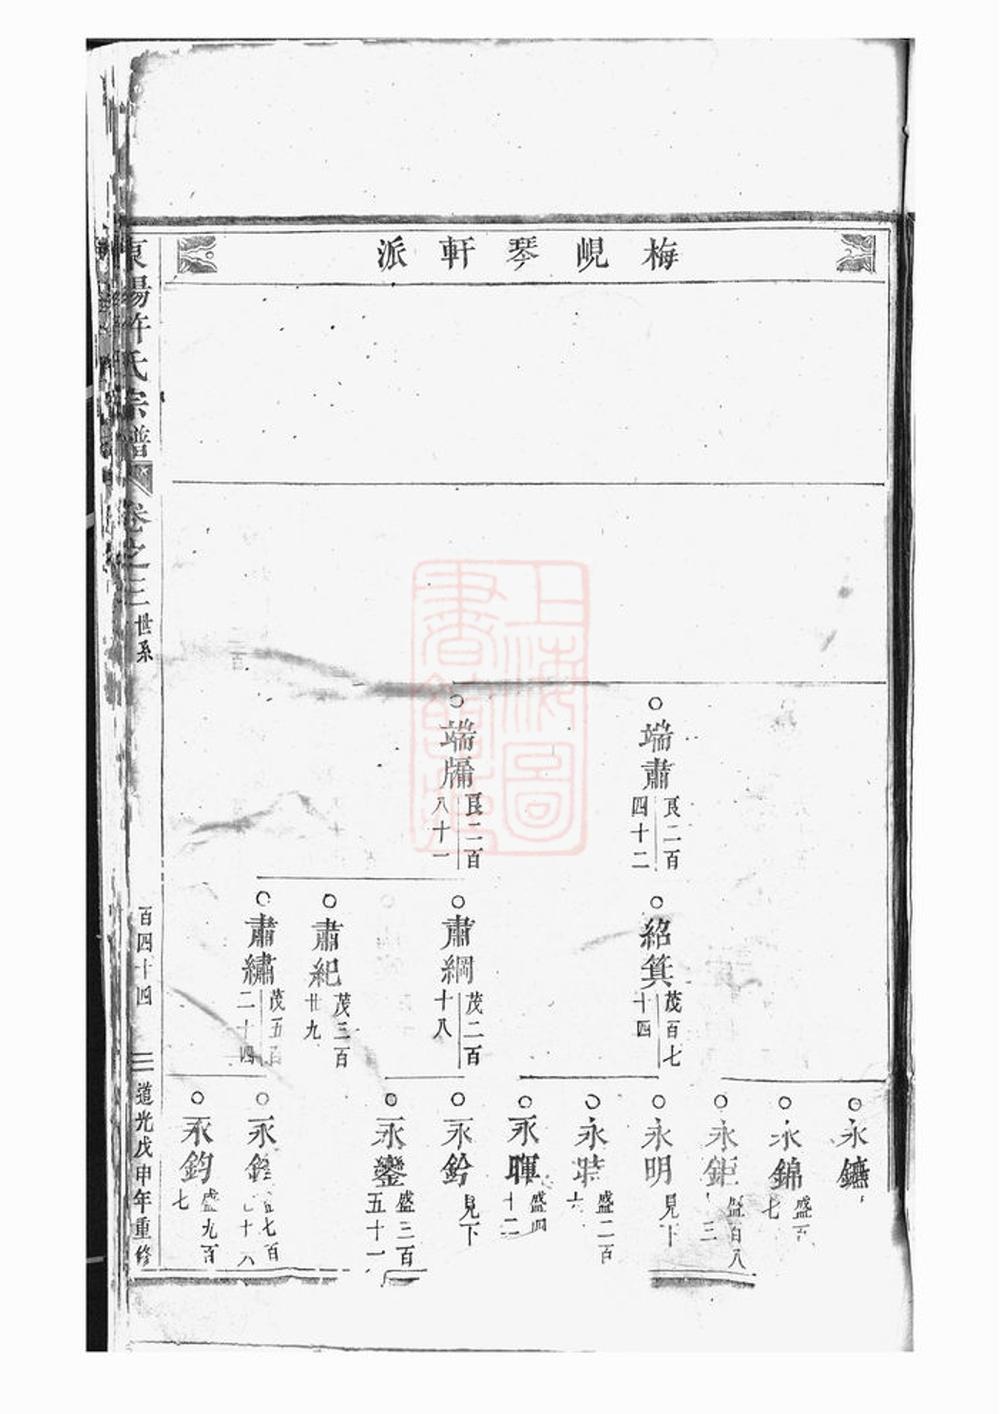 梅峴琴軒派
端肅 艮二百四十二
端牖 艮二百八十一
紹箕 茂百七十四
肅綱 茂二百十八
肅紀 茂三百廿九
肅繡 茂五百二十四
永鑣
永錦 盛五七
永鉅 盛百八十三
永明 見下
永時 盛二百六
永暉 盛四十二
永鈐 見下
永鑾 盛三百五十一
永 七百十六
永鈞 盛九百七
東陽許氏宗譜
卷之三 世系
百四十四
道光戊申年重修
上海圖書館藏